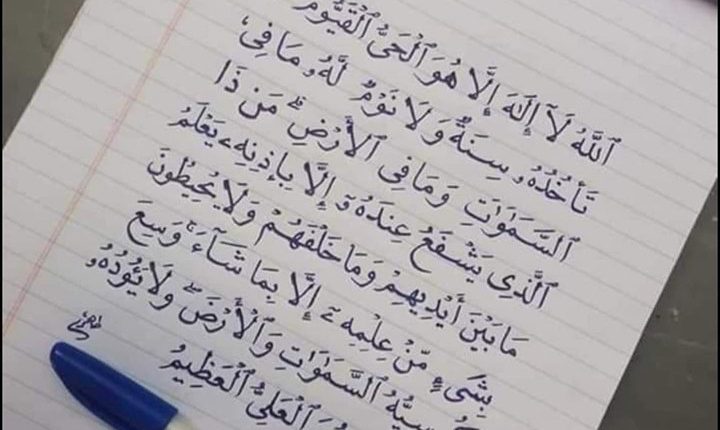 ٱللَّهُ لَآ إِلَٰهَ إِلَّا هُوَ ٱلْحَىُّ ٱلْقَيُّومُ
تَأْخُذُهُۥ سِنَةٌ وَلَا نَوْمٌ لَّهُۥ مَا فِى
ٱلسَّمَٰوَٰتِ وَمَا فِى ٱلْأَرْضِ ۗ مَن ذَا
ٱلَّذِى يَشْفَعُ عِندَهُۥٓ إِلَّا بِإِذْنِهِۦ ۚ يَعْلَمُ
مَا بَيْنَ أَيْدِيهِمْ وَمَا خَلْفَهُمْ وَلَا يُحِيطُونَ
بِشَىْءٍ مِّنْ عِلْمِهِۦٓ إِلَّا بِمَا شَآءَ ۚ وَسِعَ
ٱلسَّمَٰوَٰتِ وَٱلْأَرْضَ ۖ وَلَا يَـُٔودُهُۥ
ٱلْعَلِىُّ ٱلْعَظِيمُ